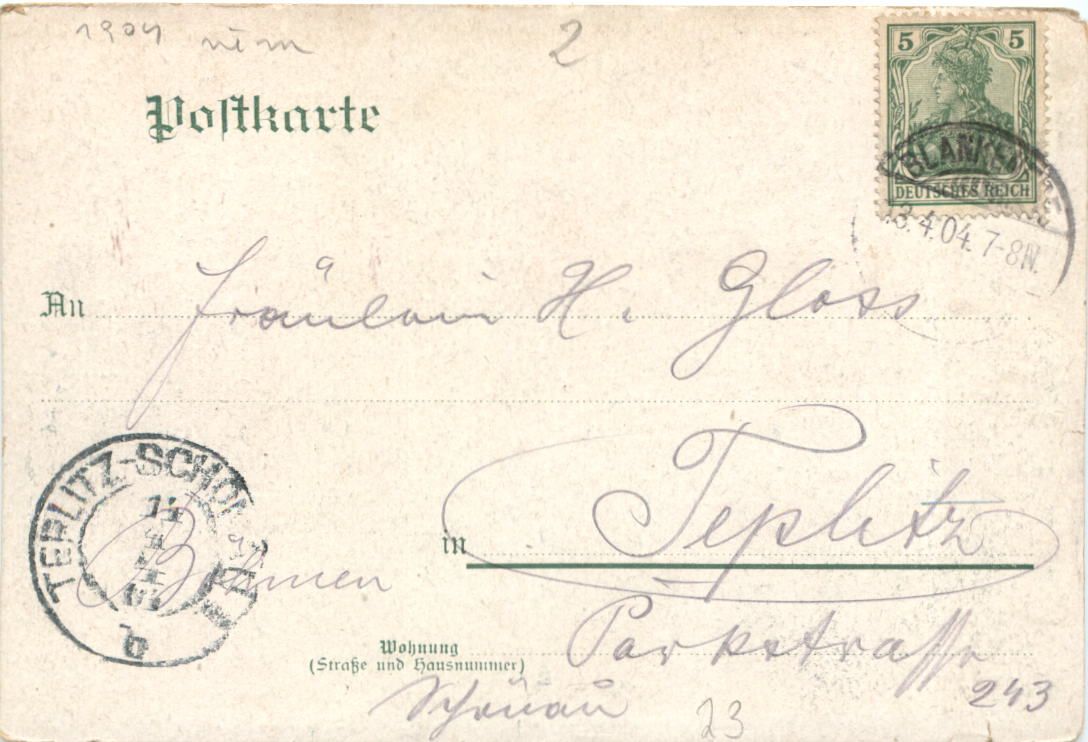 1904
2
Postkarte
5 5
DEUTSCHES REICH
BLANKENESE
3.4.04.7-8N.
An Fräulein H. Gloss.
TEPLITZ-SCHÖNAU
14
in Teplitz
Böhmen
Wohnung
(Straße und Hausnummer)
Parkstrasse
Schönau 243
23